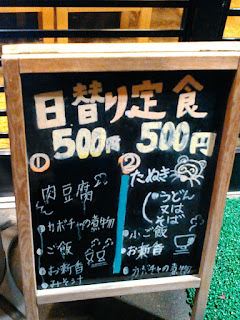 日替り定食
500円 500円
①
肉豆腐
カボチャの煮物
ご飯
お新香
みそ汁
②
たぬき
うどん
又は
そば
小ご飯
お新香
カボチャの煮物